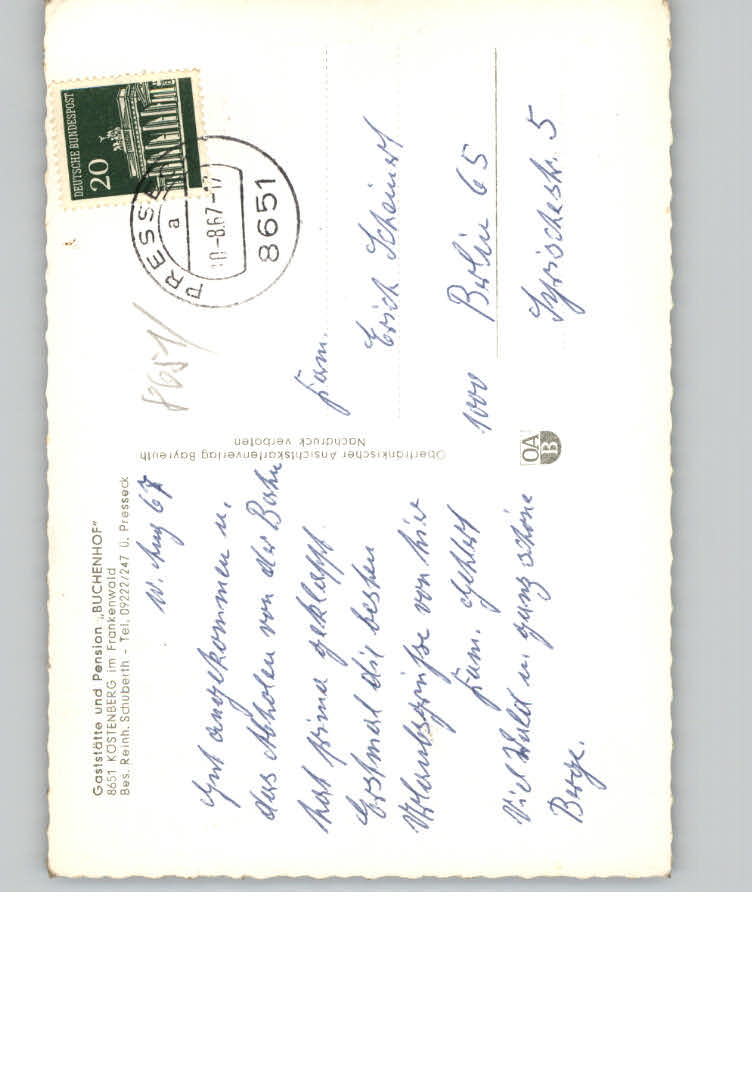 Gaststätte und Pension „BUCHENHOF"
8651 KÖSTENBERG im Frankenwald
Bes. Reinh. Schuberth - Tel. 09222/247 ü. Presseck
10. Aug 67
Gut angekommen u.
das Abholen von der Bahn
hat prima geklappt.
Erstmal die besten
Urlaubsgrüße von hier
Fam.
Viel Wald u. ganz schöne
Berge.
Oberfränkischer Ansichtskartenverlag Bayreuth
Nachdruck verboten
OA
B
DEUTSCHE BUNDESPOST
20
PRESSECK
a
10-8.67-17
8651
8651
Fam.
Erich
1000 Berlin 65
Syrischestr. 5